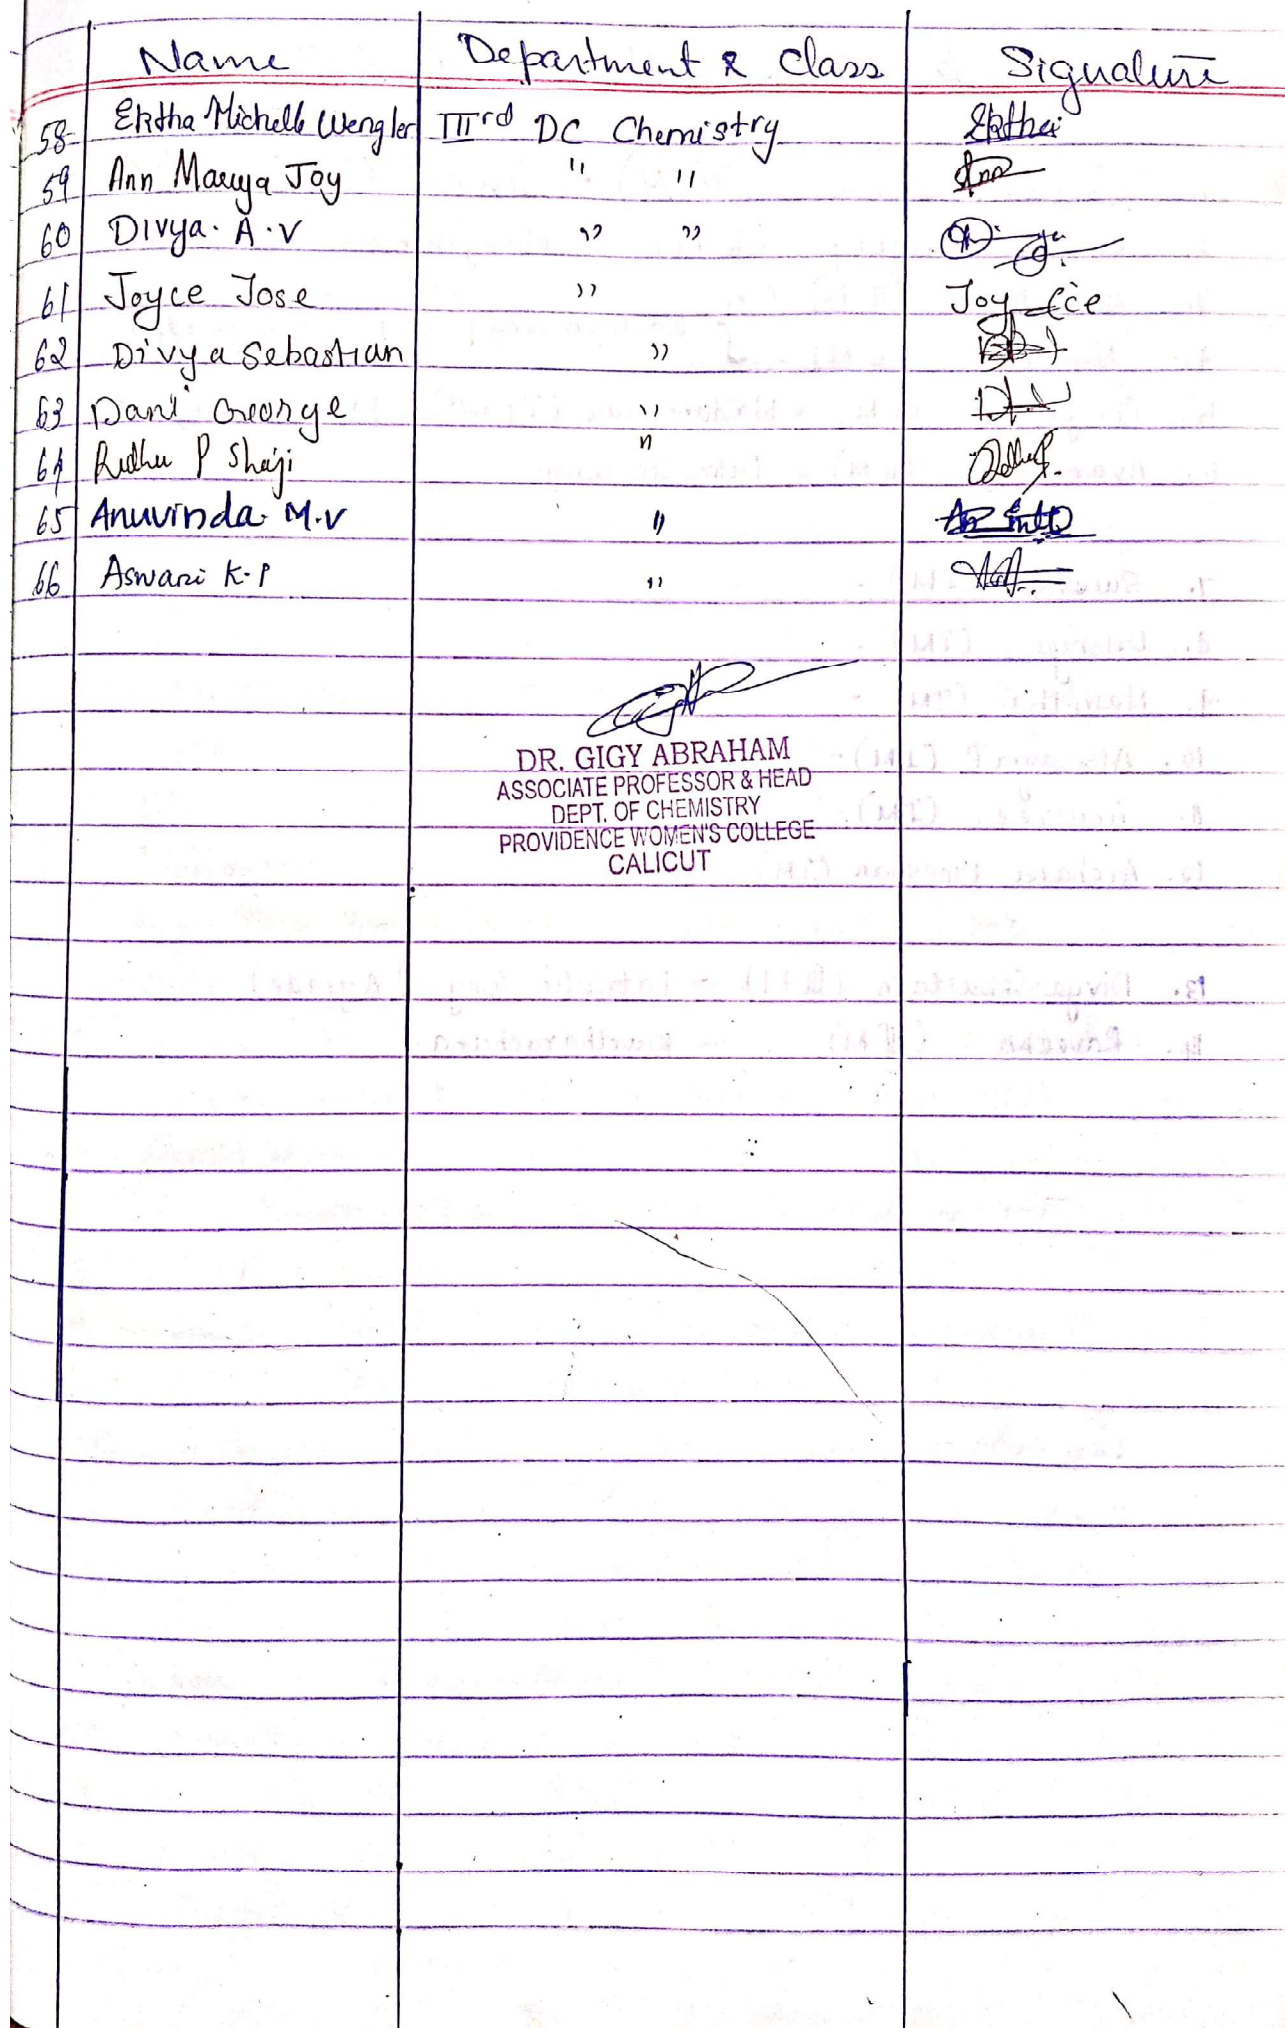 Name Department & Class Signature
58 Ektha Michelle Wengler IIIrd DC Chemistry Ektha
59 Ann Marya Joy " " Ann
60 Divya. A.V " "
61 Joyce Jose " Joyce
62 Divya Sebastian "
63 Dani George "
64 Ridhu P Shaji "
65 Anuvinda. M.V "
66 Aswani K.P "
DR. GIGY ABRAHAM
ASSOCIATE PROFESSOR & HEAD
DEPT. OF CHEMISTRY
PROVIDENCE WOMEN'S COLLEGE
CALICUT